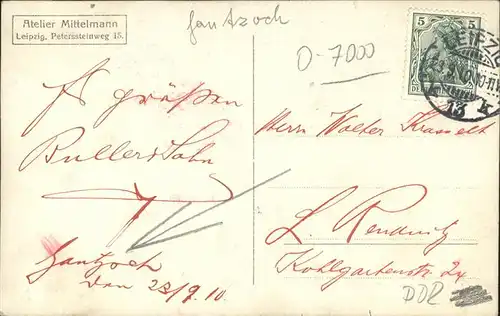 Atelier Mittelmann
Leipzig, Peterssteinweg 15.
Gautzsch
O-7000
5 5
LEIPZIG
13 k
Es grüßen
Buller & Sohn
Gautzsch
den 23/9.10.
Herrn Walter Krasselt
L. Reudnitz
Kohlgartenstr. 24
DDR